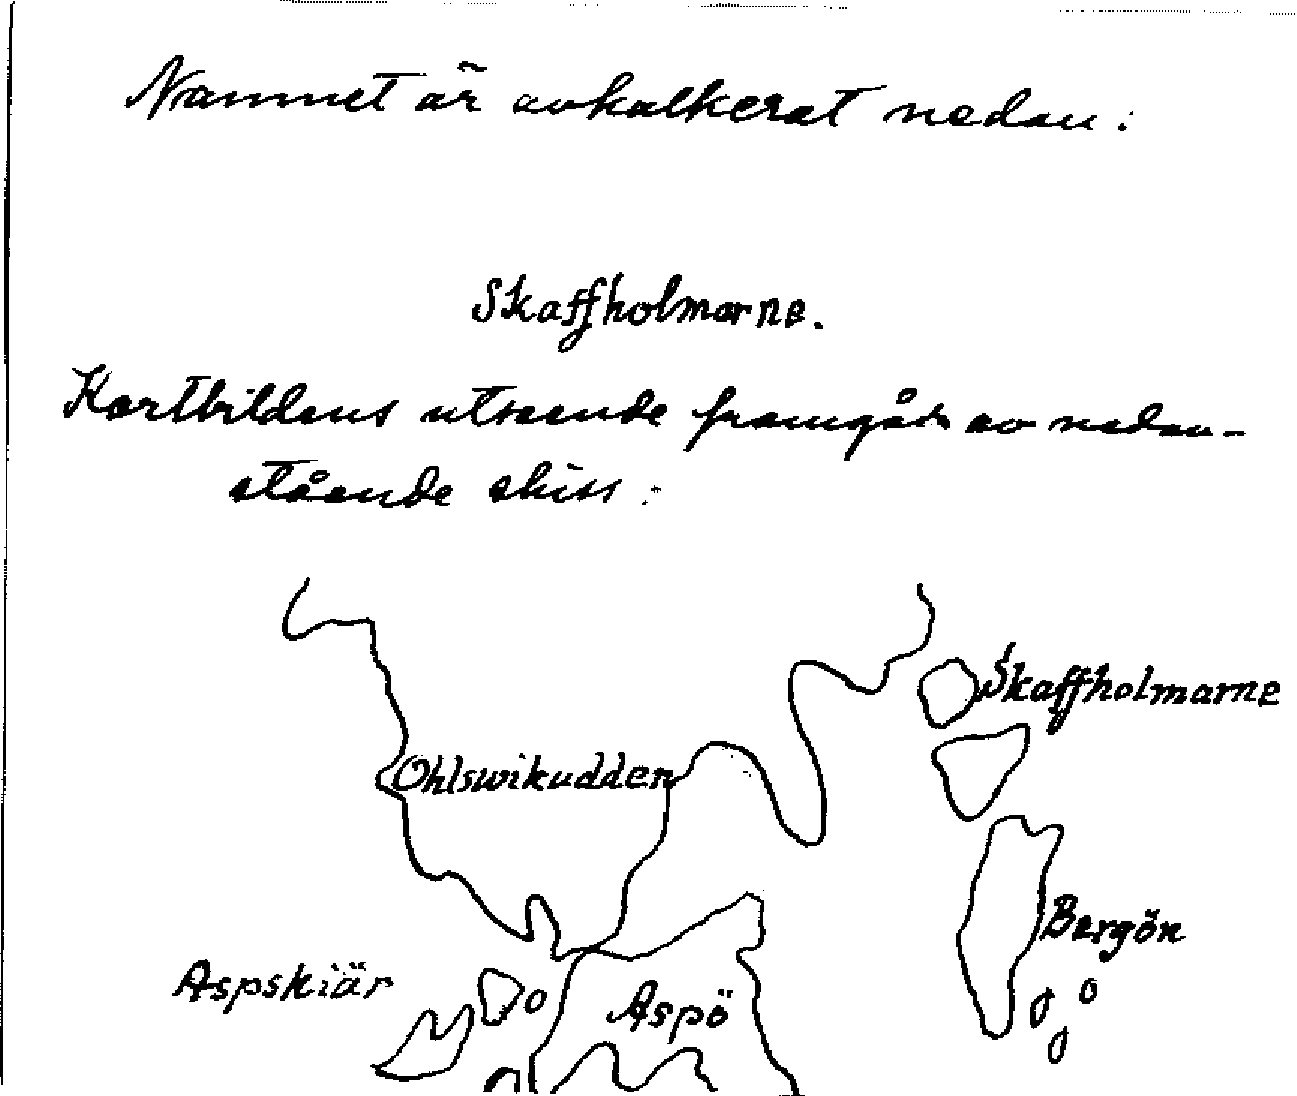 Namnet är avkalkerat nedan:
Skaffholmarne.
Kartbildens utseende framgår av nedan-
stående skiss:
Skaffholmarne
Ohlswikudden
Bergön
Aspskiär
Aspö